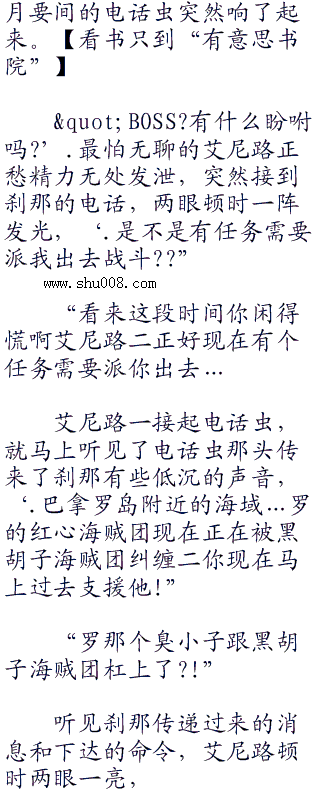 月要间的电话虫突然响了起
来。【看书只到“有意思书
院”】
&quot;BOSS?有什么盼咐
吗?’.最怕无聊的艾尼路正
愁精力无处发泄，突然接到
刹那的电话，两眼顿时一阵
发光，‘.是不是有任务需要
派我出去战斗??”
www.shu008.com
“看来这段时间你闲得
慌啊艾尼路二正好现在有个
任务需要派你出去…
艾尼路一接起电话虫，
就马上听见了电话虫那头传
来了刹那有些低沉的声音，
‘.巴拿罗岛附近的海域…罗
的红心海贼团现在正在被黑
胡子海贼团纠缠二你现在马
上过去支援他!”
“罗那个臭小子跟黑胡
子海贼团杠上了?!”
听见刹那传递过来的消
息和下达的命令，艾尼路顿
时两眼一亮，